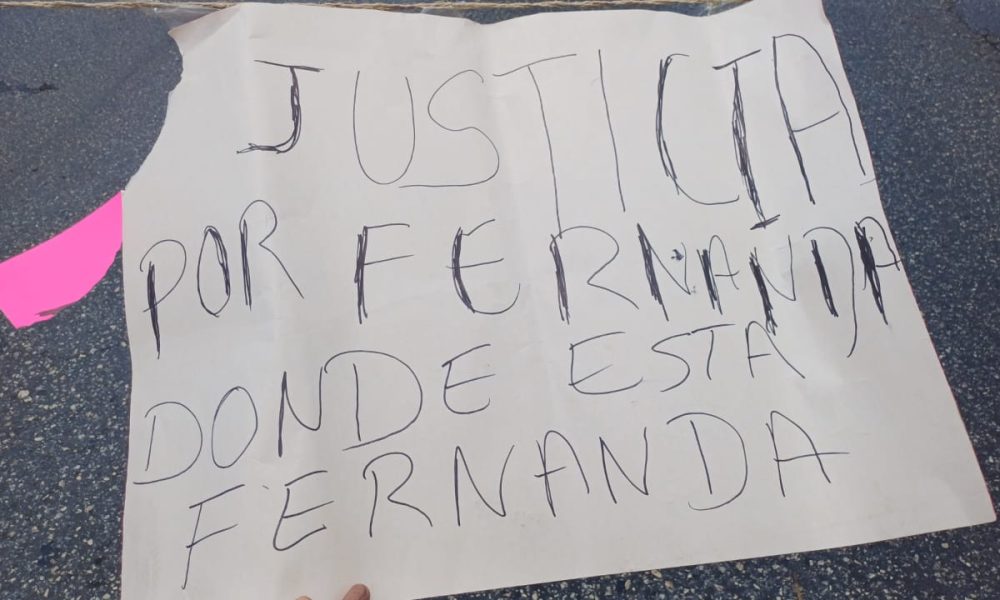 JUSTICIA
POR FERNANDA
DONDE ESTA
FERNANDA